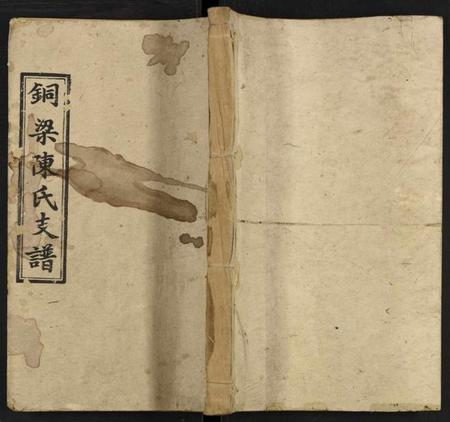 銅梁陳氏支譜